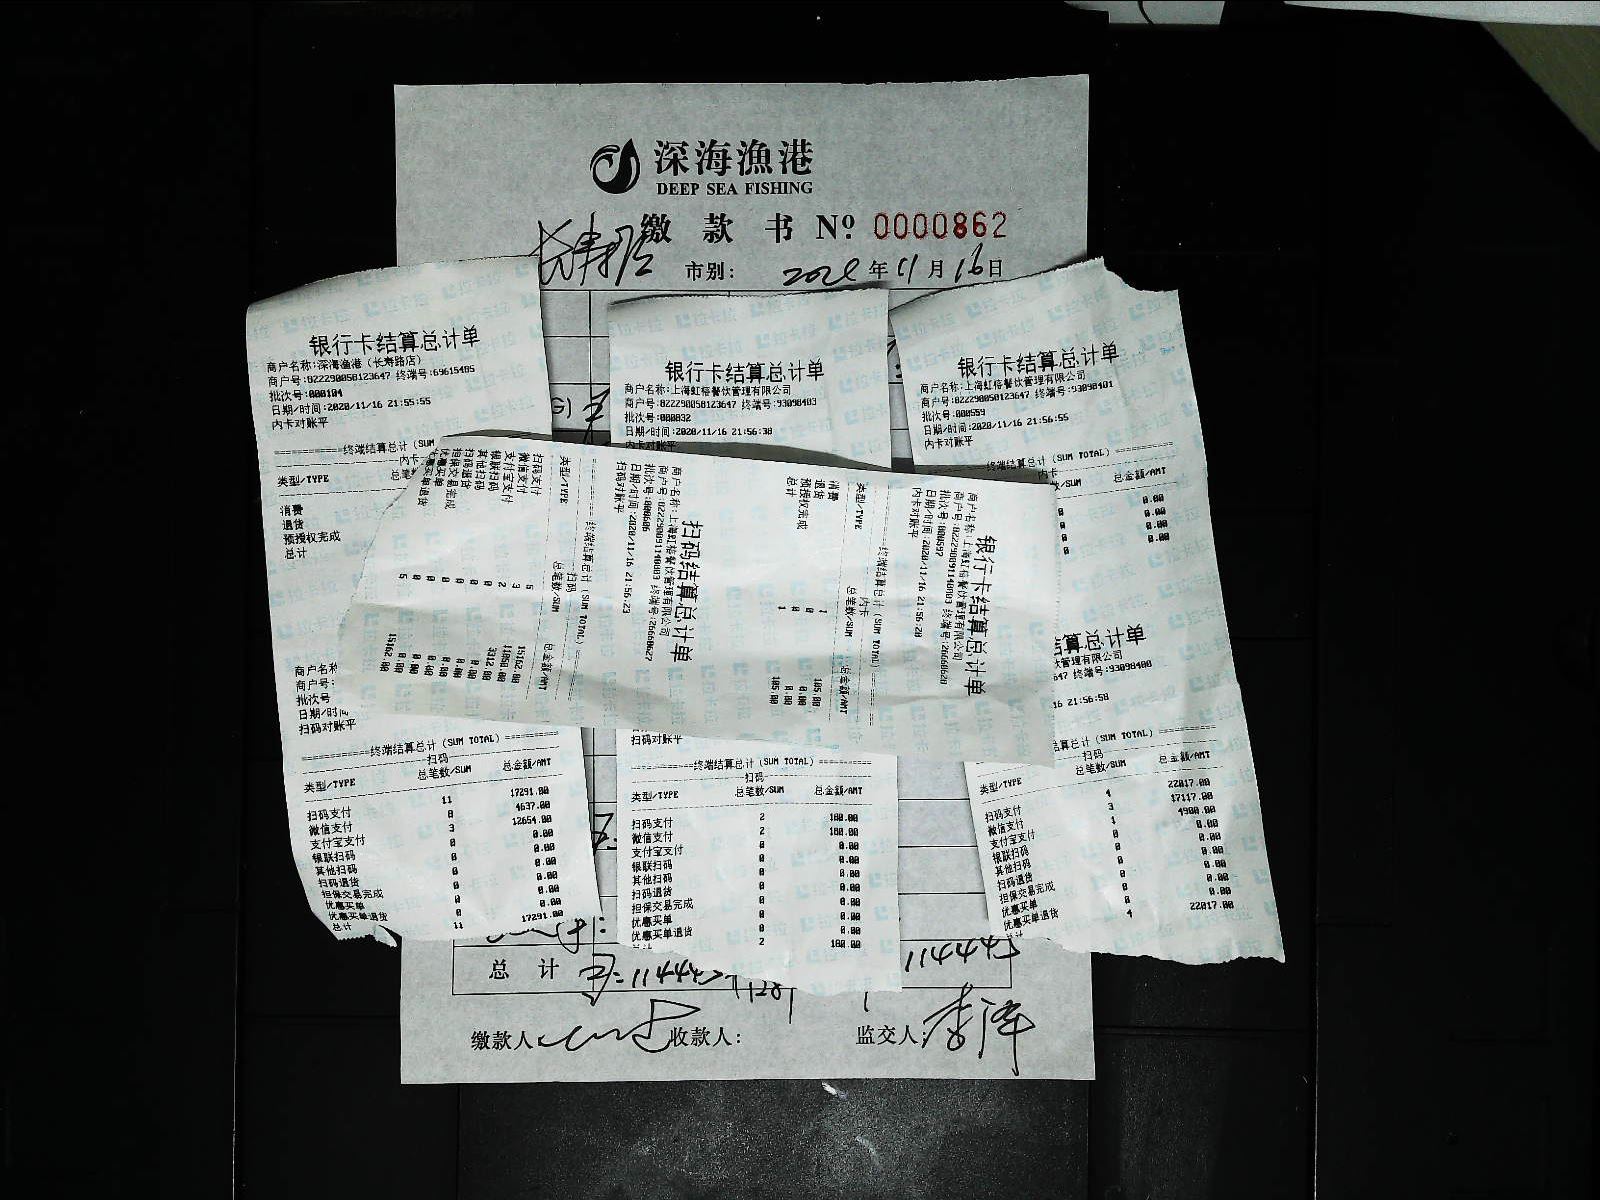 深海漁港
DEEP SEA FISHING
缴 款 书 Nº 0000862
市别: 年 11 月 16 日
银行卡结算总计单
商户名称:深海渔港(长寿路店)
商户号:822290058123647 终端号:69615485
批次号:000104
日期/时间:2020/11/16 21:55:55
内卡对账平
终端结算总计(SUM
内卡
类型/TYPE
消费
退货
预授权完成
总计
商户名称
商户号:
批次号
日期/时间
扫码对账平
终端结算总计(SUM TOTAL)
扫码
类型/TYPE 总笔数/SUM 总金额/AMT
扫码支付 11 17291.00
微信支付 8 4637.00
支付宝支付 3 12654.00
银联扫码 0 0.00
其他扫码 0 0.00
扫码退货 0 0.00
担保交易完成 0 0.00
优惠买单 0 0.00
优惠买单退货 0 0.00
总计 11 17291.00
银行卡结算总计单
商户名称:上海虹榕餐饮管理有限公司
商户号:822290058123647 终端号:93098403
批次号:000832
日期/时间:2020/11/16 21:56:38
内卡对账平
扫码对账平
终端结算总计(SUM TOTAL)
扫码
类型/TYPE 总笔数/SUM 总金额/AMT
扫码支付 2 180.00
微信支付 2 180.00
支付宝支付 0 0.00
银联扫码 0 0.00
其他扫码 0 0.00
扫码退货 0 0.00
担保交易完成 0 0.00
优惠买单 0 0.00
优惠买单退货 0 0.00
2 180.00
银行卡结算总计单
商户名称:上海虹榕餐饮管理有限公司
商户号:822290058123647 终端号:93098401
批次号:000559
日期/时间:2020/11/16 21:56:55
内卡对账平
终端结算总计(SUM TOTAL)
内卡
/SUM 总金额/AMT
0 0.00
0 0.00
0 0.00
0 0.00
结算总计单
管理有限公司
647 终端号:93098400
16 21:56:58
总计(SUM TOTAL)
扫码
类型/TYPE 总笔数/SUM 总金额/AMT
扫码支付 4 22017.00
微信支付 3 17117.00
支付宝支付 1 4900.00
银联扫码 0 0.00
其他扫码 0 0.00
扫码退货 0 0.00
担保交易完成 0 0.00
优惠买单 0 0.00
优惠买单退货 0 0.00
4 22017.00
银行卡结算总计单
商户名称:上海虹榕餐饮管理有限公司
商户号:822290091140003 终端号:26668628
批次号:000597
日期/时间:2020/11/16 21:56:28
内卡对账平
终端结算总计(SUM TOTAL)
内卡
类型/TYPE 总笔数/SUM 总金额/AMT
消费 1 105.00
退货 0 0.00
预授权完成 0 0.00
总计 1 105.00
扫码结算总计单
商户名称:上海虹榕餐饮管理有限公司
商户号:822290091140003 终端号:26668627
批次号:000606
日期/时间:2020/11/16 21:56:23
扫码对账平
终端结算总计(SUM TOTAL)
扫码
类型/TYPE 总笔数/SUM 总金额/AMT
扫码支付 5 15162.00
微信支付 3 11850.00
支付宝支付 2 3312.00
银联扫码 0 0.00
其他扫码 0 0.00
扫码退货 0 0.00
担保交易完成 0 0.00
优惠买单 0 0.00
优惠买单退货 0 0.00
5 15162.00
总 计
缴款人: 收款人: 监交人: